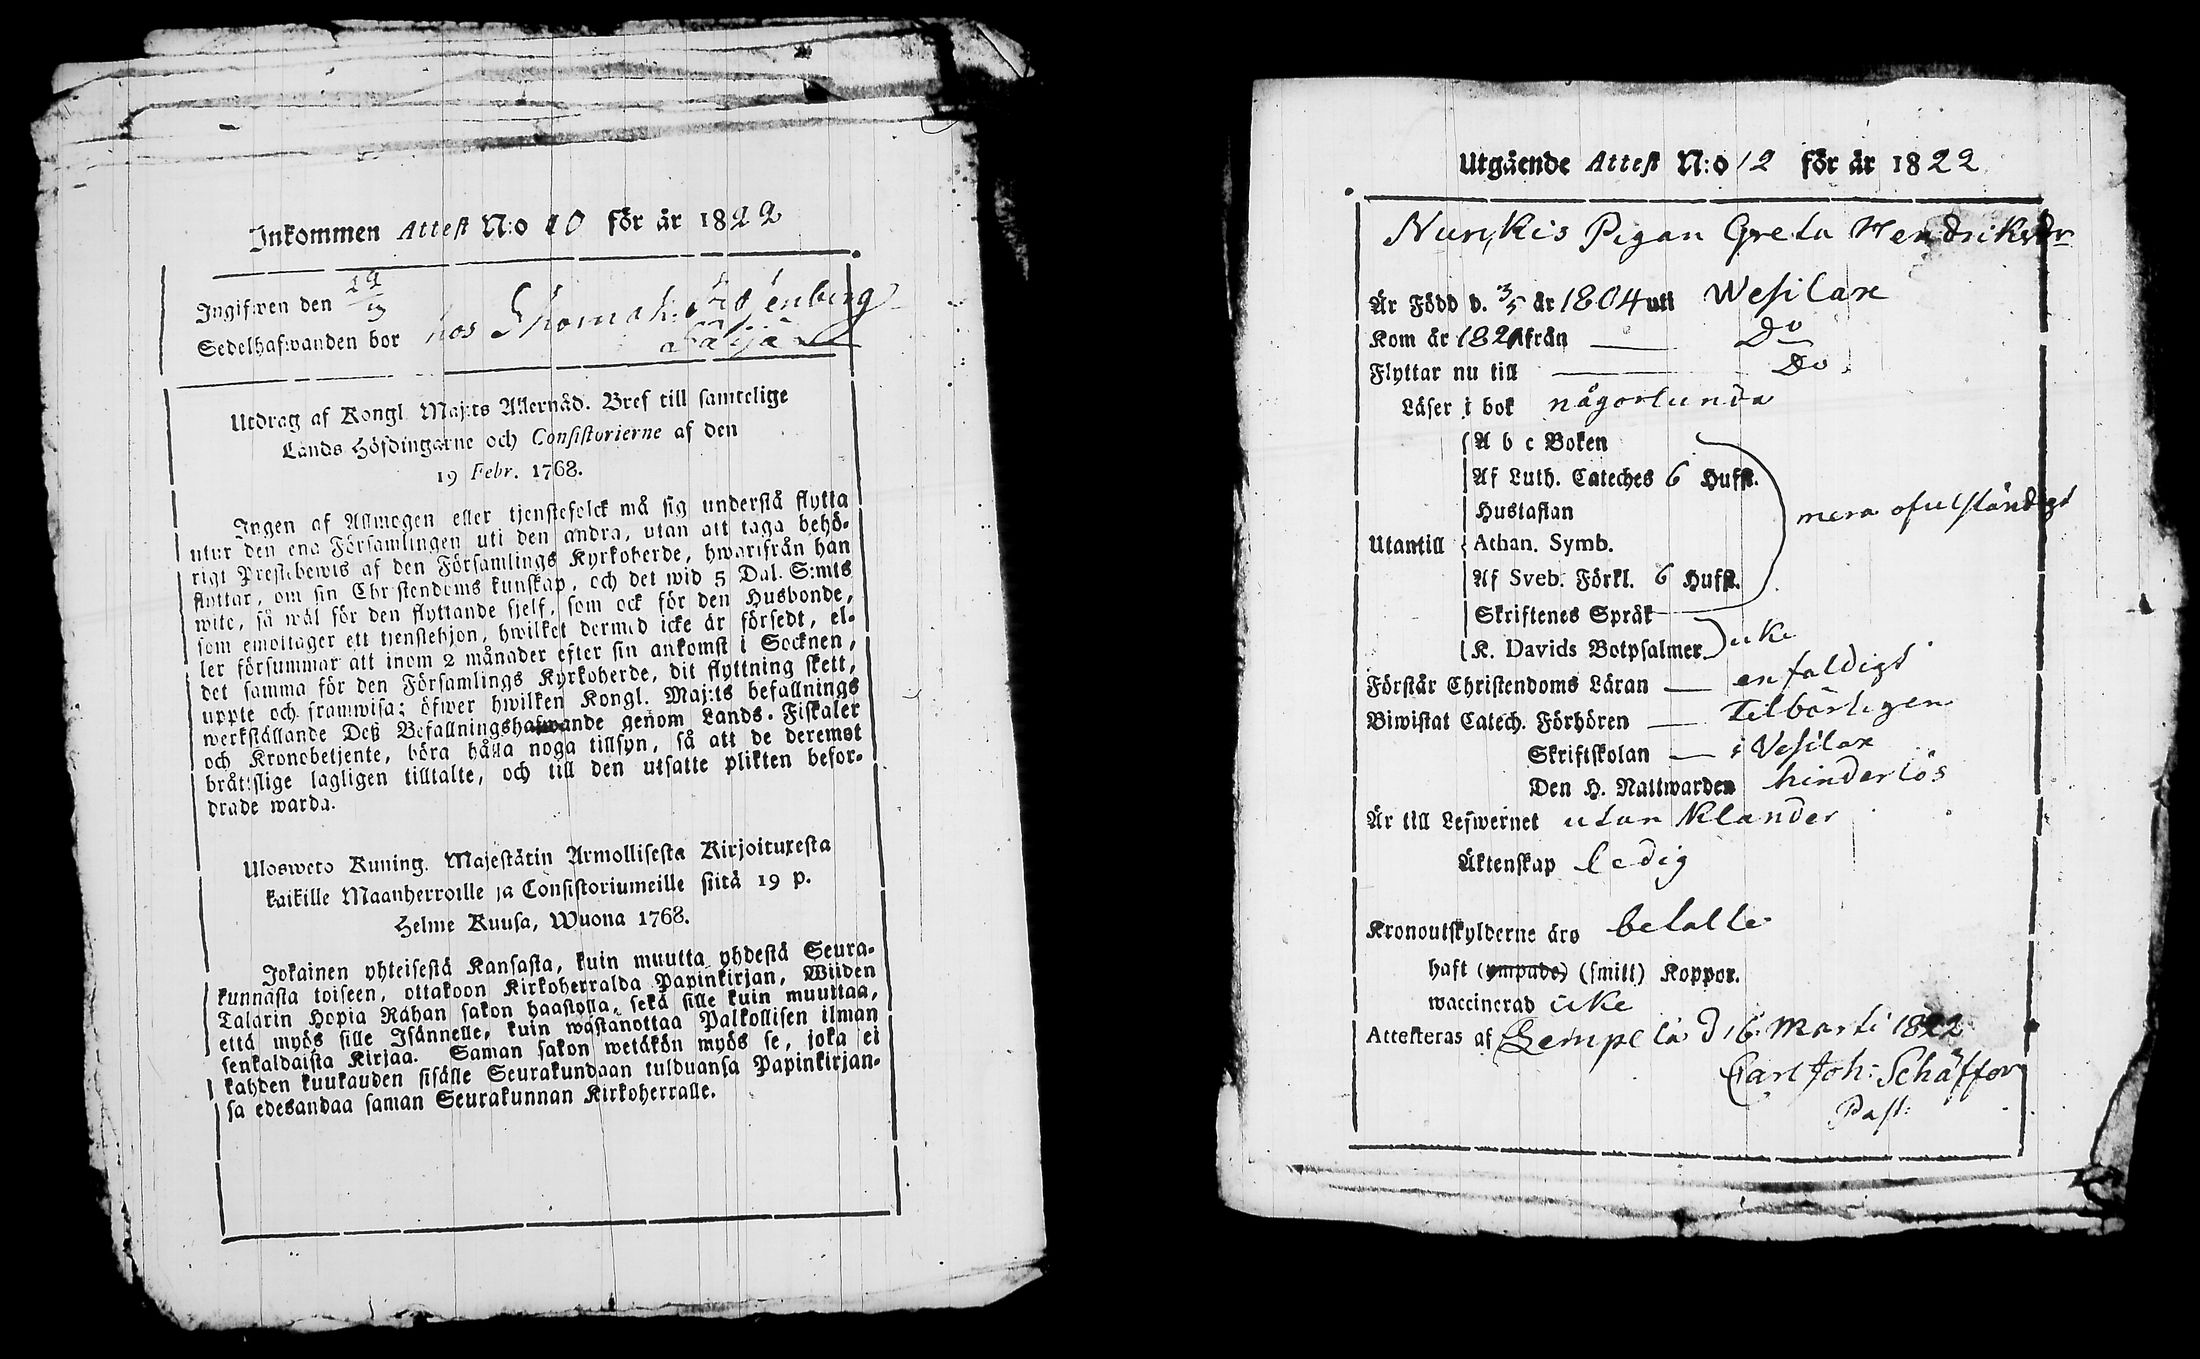 Inkommen Attest N:o 10 för år 1822
Ingifwen den 19/3
Sedelhafwanden bor hos Thomas
Utdrag af Kongl. Maj:ts Allernåd. Bref till samtelige
Lands Höfdingarne och Consistorierne af den
19 Febr. 1768.
Ingen af Allmogen eller tjenstefolck må sig understå flytta
utur den ena Församlingen uti den andra, utan att taga behö-
rigt Prestebewis af den Församlings Kyrkoherde, hwarifrån han
flyttar, om sin Christendoms kunskap, och det wid 5 Dal. S:mts
wite, så wäl för den flyttande sjelf, som ock för den Husbonde,
som emottager ett tjenstehjon, hwilket dermed icke är försedt, el-
ler försummar att inom 2 månader efter sin ankomst i Socknen,
det samma för den Församlings Kyrkoherde, dit flyttning skett,
uppte och framwisa; öfwer hwilken Kongl. Maj:ts befallnings
werkställande Deß Befallningshafwande genom Lands-Fiskaler
och Kronobetjente, böra hålla noga tillsyn, så att de deremot
bråttslige lagligen tilltalte, och till den utsatte plikten befor-
drade warda.
Ulosweto Kuning. Majestätin Armollisesta Kirjoituxesta
kaikille Maanherroille ja Consistoriumeille siitä 19 p.
Helme Kuusa, Wuona 1768.
Jokainen yhteisestä Kansasta, kuin muutta yhdestä Seura-
kunnasta toiseen, ottakoon Kirkoherralda Papinkirjan, Wiiden
Talarin Hopia Rahan sakon haastolla, sekä sille kuin muuttaa,
että myös sille Isännelle, kuin wastanottaa Palkollisen ilman
senkaldaista Kirjaa. Saman sakon wetäkön myös se, joka ei
kahden kuukauden sisälle Seurakundaan tulduansa Papinkirjan-
sa edesandaa saman Seurakunnan Kirkoherralle.
Utgående Attest N:o 12 för år 1822
Pigan Greta Hendriksdr
Är Född d. 3/5 år 1804 uti Wesilax
Kom år 1821 från Do
Flyttar nu till Do
Läser i bok någorlunda
A b c Boken
Af Luth. Cateches 6 Hufst.
Hustaflan
mera ofulständigt
Utantill Athan. Symb.
Af Sveb. Förkl. 6 Hufst.
Skriftenes Språk
K. Davids Botpsalmer icke
Förstår Christendoms Läran enfaldigt
Biwistat Catech. Förhören Tilbörligen
Skriftskolan i Vesilax
Den H. Nattwarden hinderlös
Är till Lefwernet utan Klander
Äktenskap ledig
Kronoutskylderne äro betalte
haft (ympade) (smitt) Koppor.
waccinerad icke
Attesteras af Lempela d 16 Marti 1822
Carl Joh: Schäffer
Past: